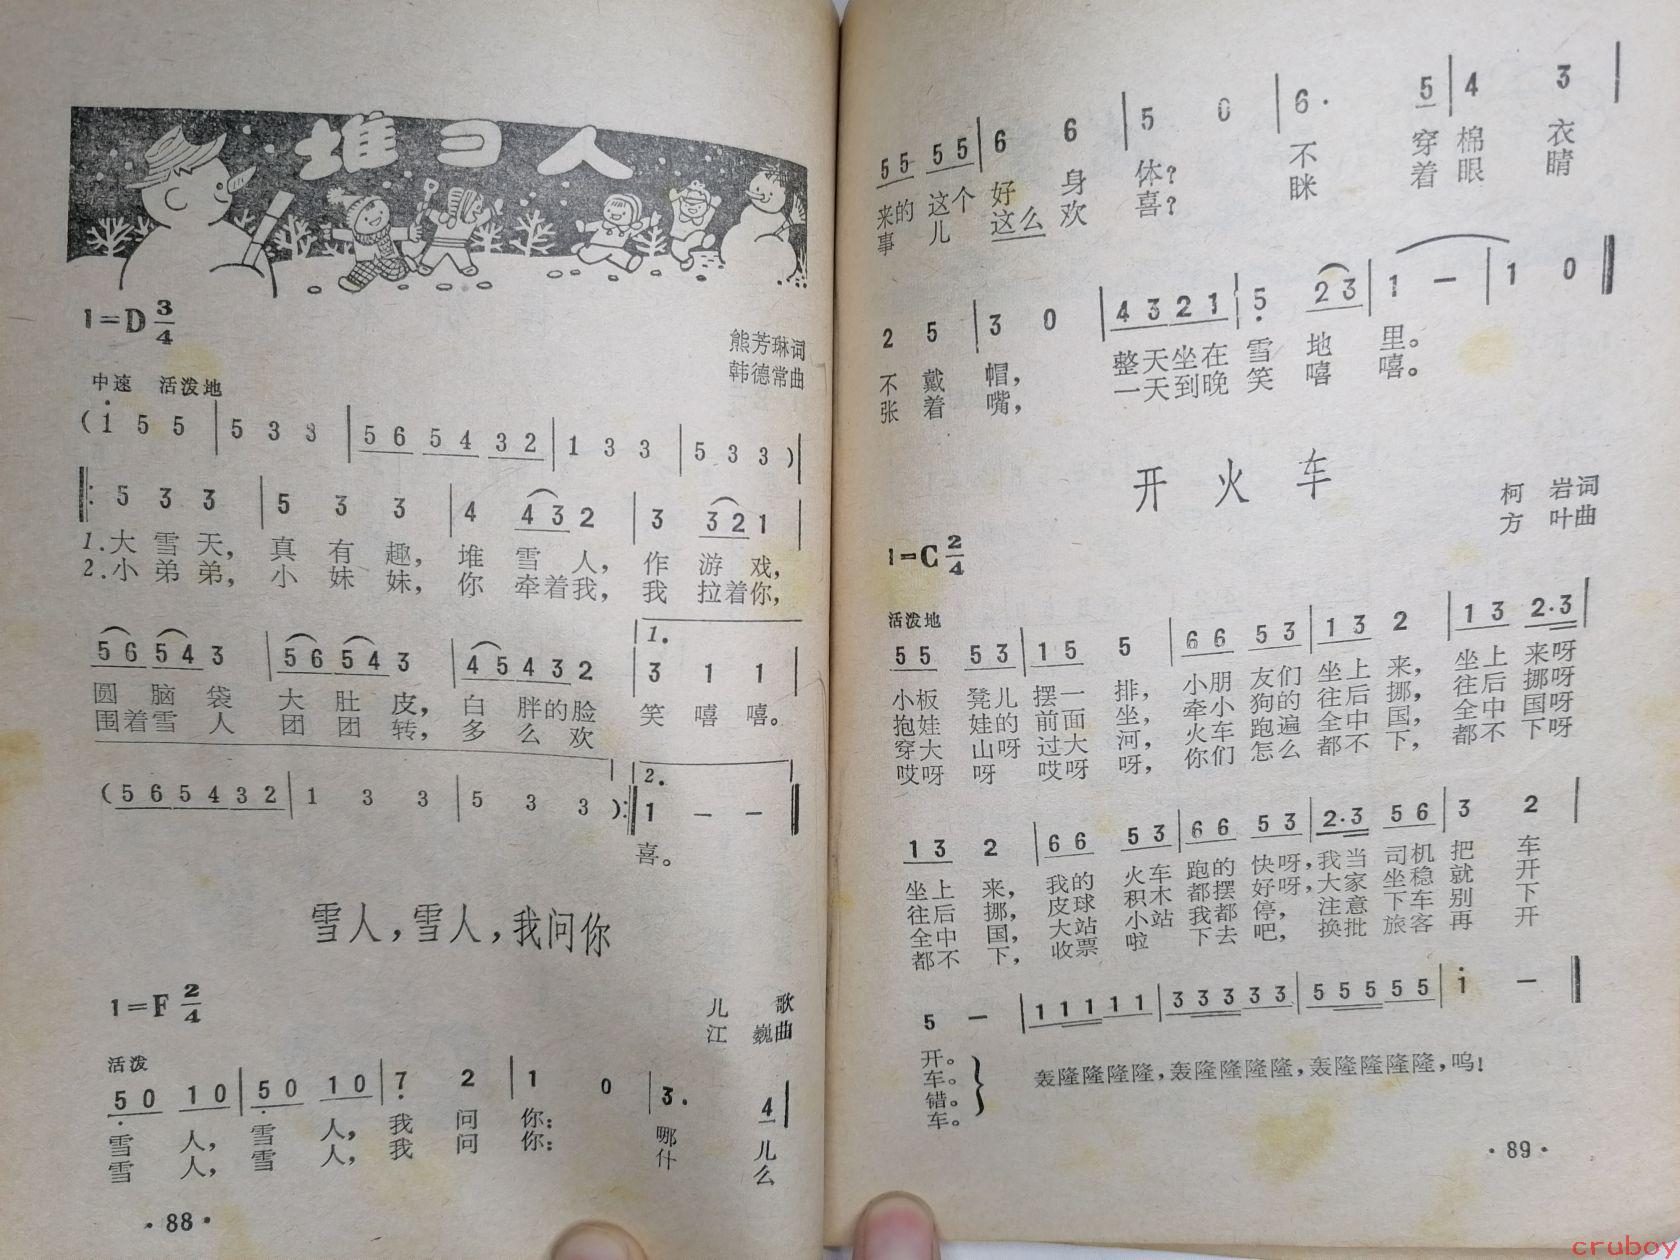 堆雪人
1=D 3/4
熊芳琳词
韩德常曲
中速 活泼地
( i 5 5 | 5 3 3 | 5 6 5 4 3 2 | 1 3 3 | 5 3 3 ) |
|: 5 3 3 | 5 3 3 | 4 4 3 2 | 3 3 2 1 |
1.大雪天，真有趣，堆雪人，作游戏，
2.小弟弟，小妹妹，你牵着我，我拉着你，
5 6 5 4 3 | 5 6 5 4 3 | 4 5 4 3 2 | 1. 3 1 1 |
圆脑袋大肚皮，白胖的脸笑嘻嘻。
围着雪人团团转，多么欢
( 5 6 5 4 3 2 | 1 3 3 | 5 3 3 ) :| 2. 1 - - ‖
喜。
雪人，雪人，我问你
1=F 2/4
儿歌
江巍曲
活泼
5 0 1 0 | 5 0 1 0 | 7 2 | 1 0 | 3. 4 |
雪人，雪人，我问你：哪儿
雪人，雪人，我问你：什么
·88·
5 5 5 5 | 6 6 | 5 0 | 6. 5 | 4 3 |
来的这个好身体？不穿棉衣
事儿这么欢喜？眯着眼睛
2 5 | 3 0 | 4 3 2 1 | 5 2 3 | 1 - | 1 0 ‖
不戴帽，整天坐在雪地里。
张着嘴，一天到晚笑嘻嘻。
开火车
柯岩词
方叶曲
1=C 2/4
活泼地
5 5 5 3 | 1 5 5 | 6 6 5 3 | 1 3 2 | 1 3 2·3 |
小板凳儿摆一排，小朋友们坐上来，坐上来呀
抱娃娃的前面坐，牵小狗的往后挪，往后挪呀
穿大山呀过大河，火车跑遍全中国，全中国呀
哎呀呀哎呀呀，你们怎么都不下，都不下呀
1 3 2 | 6 6 5 3 | 6 6 5 3 | 2·3 5 6 | 3 2 |
坐上来，我的火车跑的快呀，我当司机把车
往后挪，皮球积木都摆好呀，大家坐稳就开
全中国，大站小站我都停，注意下车别下
都不下，收票啦下去吧，换批旅客再开
5 - | 1 1 1 1 1 | 3 3 3 3 3 | 5 5 5 5 5 | i - ‖
开。
车。
错。
车。
轰隆隆隆隆，轰隆隆隆隆，轰隆隆隆隆，呜！
·89·
cruboy